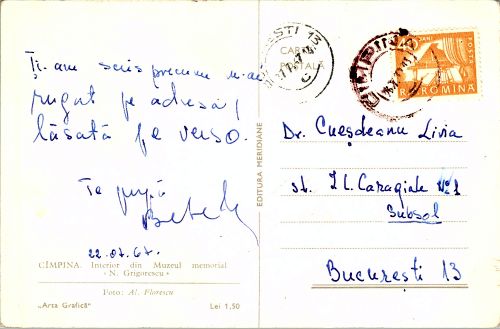 Ți-am scris precum m-ai
rugat pe adresa
lăsată pe verso.
Te pupă
22.07.67.
CÎMPINA. Interior din Muzeul memorial
«N. Grigorescu»
Foto: Al. Florescu
„Arta Grafică“
Lei 1,50
EDITURA MERIDIANE
CARTE
POȘTALĂ
CÎMPINA
POSTA
R.P. ROMINA
Dr. Cueșdeanu Livia
st. I.L. Caragiale No 1
Subsol
București 13